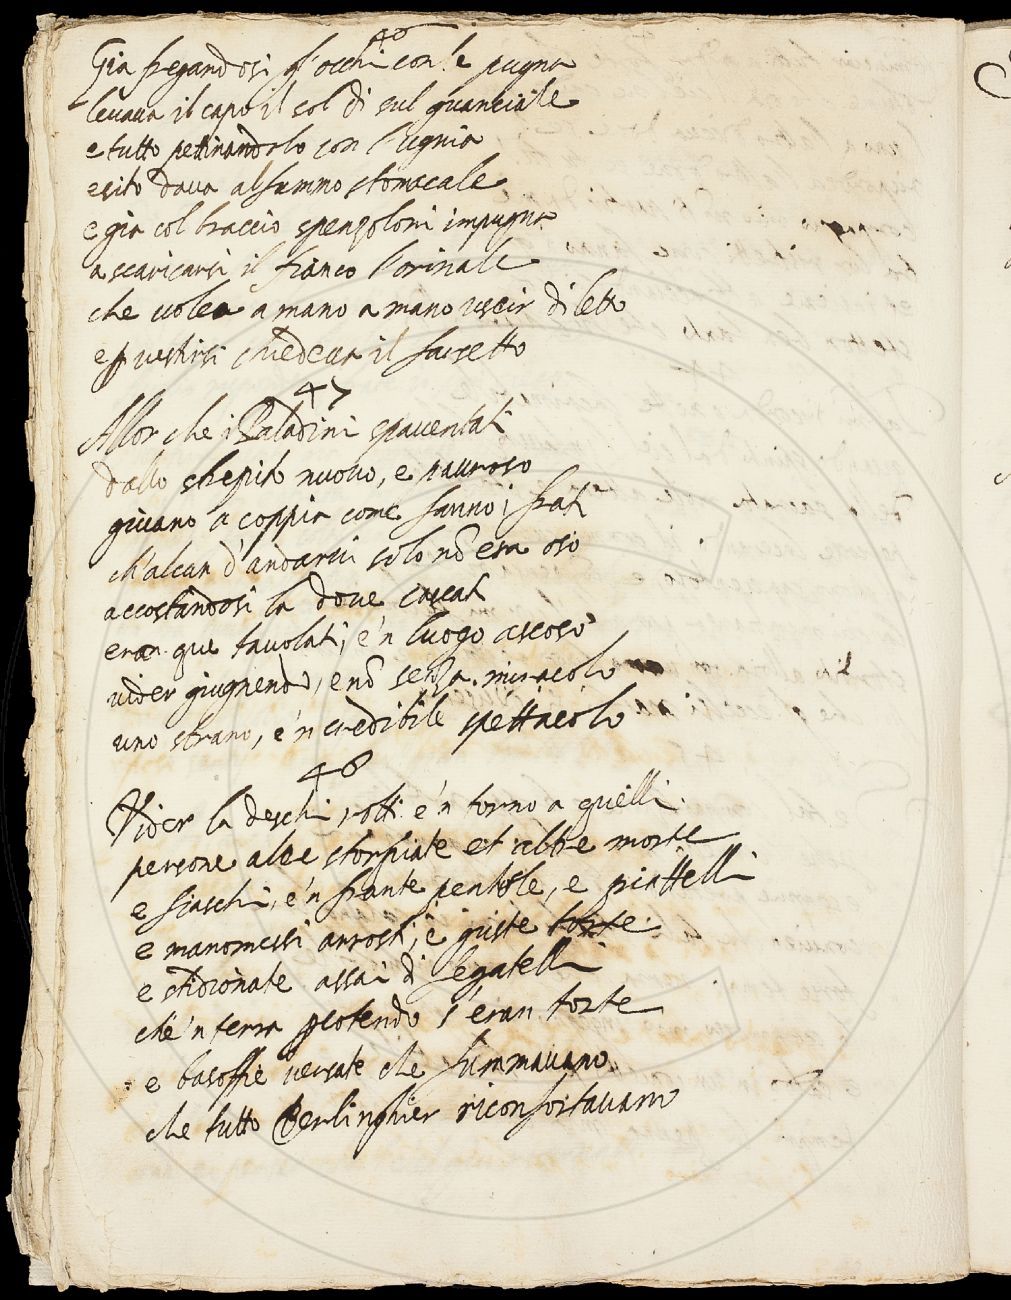 46
Gia fregandosi gl'occhi con le pugna
levava il capo il sol di sul guanciale
e tutto pettinandolo con l'ugnia
esito dava al fummo stomacale
e gia col braccio spenzoloni impugna
a scaricarsi il fianco l'orinale
che volea a mano a mano uscir di letto
e p vestirsi chiedeva il farsetto
47
Allor che i Paladini spaventati
dallo strepito nuovo, e pauroso
givano a coppia come fanno i frati
ch'alcun d'andarvi solo nõ era oso
accostandosi la dove cascati
eran que tavolati, e'n luogo ascoso
vider giugnendo, e nõ senza miracolo
uno strano, e'n credibile spettacolo
48
Vider la deschi rotti e'n torno a quelli
persone altre storpiate et altre morte
e fiaschi, e'n frante pentole, e piattelli
e manomessi arrosti, e guaste torte
e stidionate assai di fegatelli
che'n terra percotendo s'eran torte
e basoffie versate che fummavano
che tutto Berlinghier riconfortavano